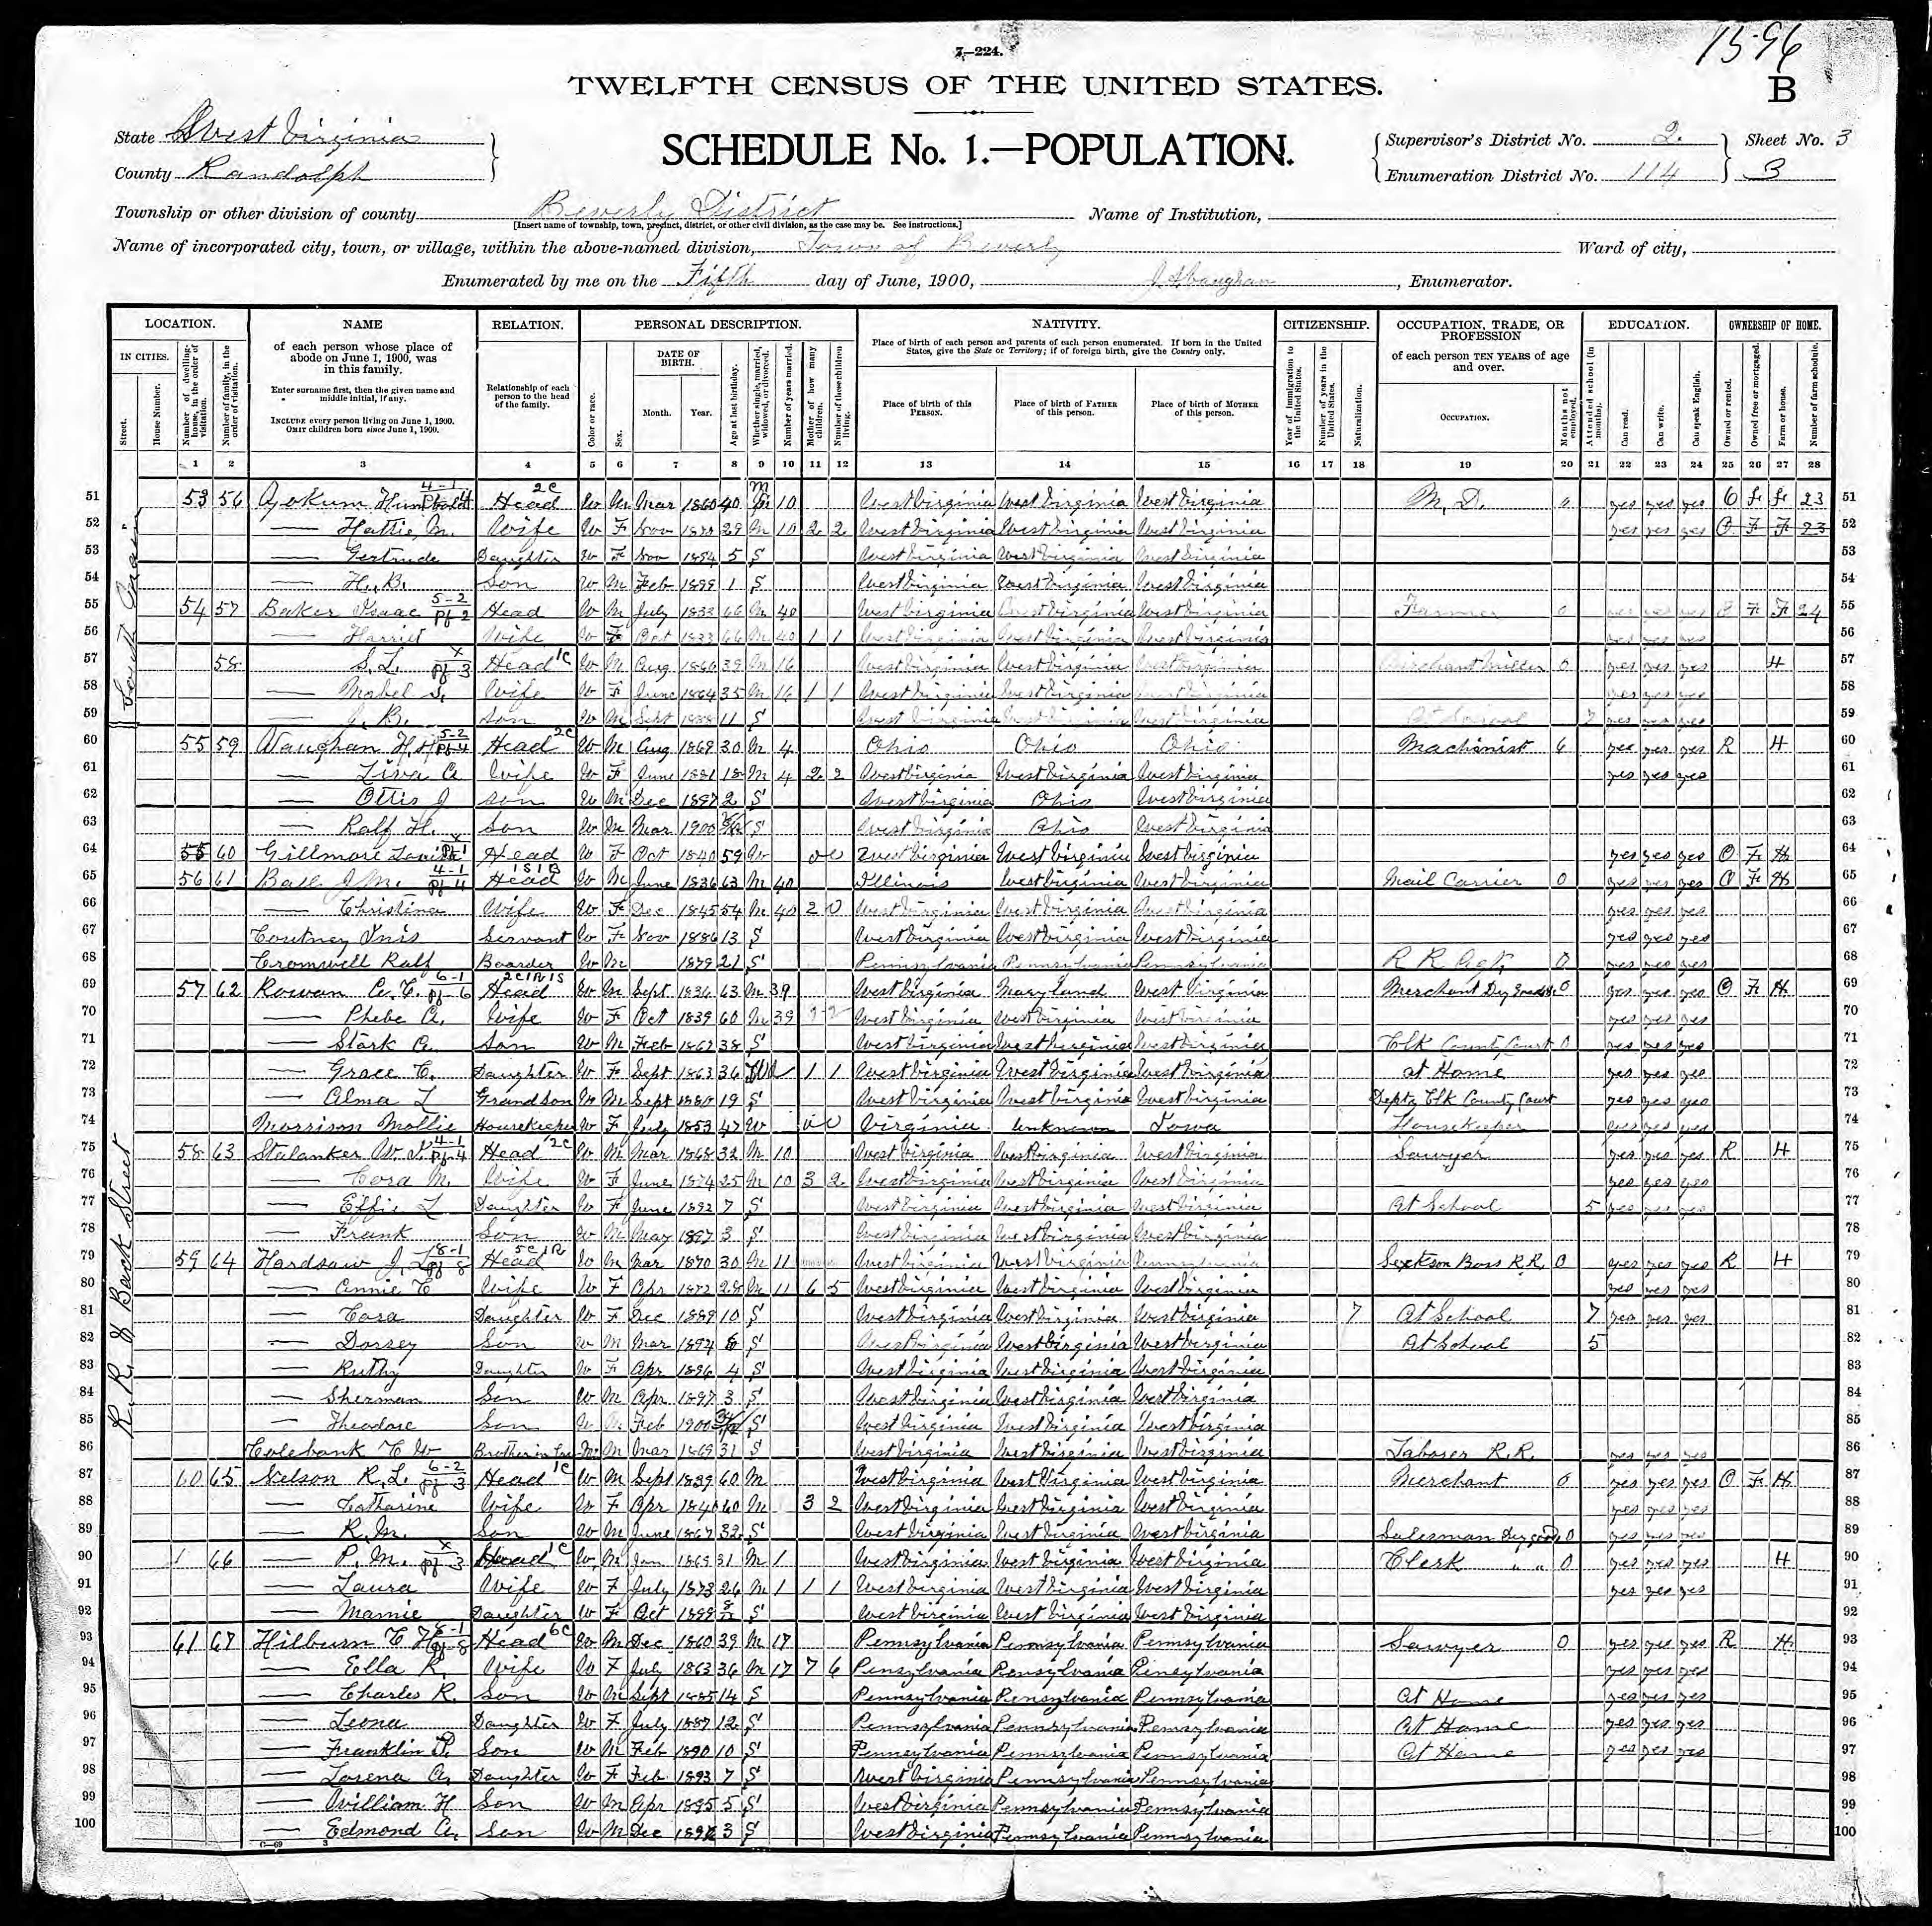 7—224.
15-96
TWELFTH CENSUS OF THE UNITED STATES.
B
State West Virginia
County Randolph
SCHEDULE No. 1.—POPULATION.
Supervisor's District No. 2. Sheet No. 3
Enumeration District No. 114 3
Township or other division of county Beverly District Name of Institution,
[Insert name of township, town, precinct, district, or other civil division, as the case may be. See instructions.]
Name of incorporated city, town, or village, within the above-named division, Town of Beverly Ward of city,
Enumerated by me on the Fifth day of June, 1900, Enumerator.
LOCATION. NAME RELATION. PERSONAL DESCRIPTION. NATIVITY. CITIZENSHIP. OCCUPATION, TRADE, OR PROFESSION EDUCATION. OWNERSHIP OF HOME.
IN CITIES.
Street.
House Number.
Number of dwelling-house, in the order of visitation.
Number of family, in the order of visitation.
of each person whose place of abode on June 1, 1900, was in this family.
Enter surname first, then the given name and middle initial, if any.
INCLUDE every person living on June 1, 1900.
OMIT children born since June 1, 1900.
Relationship of each person to the head of the family.
Color or race.
Sex.
DATE OF BIRTH.
Month. Year.
Age at last birthday.
Whether single, married, widowed, or divorced.
Number of years married.
Mother of how many children.
Number of these children living.
Place of birth of each person and parents of each person enumerated. If born in the United States, give the State or Territory; if of foreign birth, give the Country only.
Place of birth of this PERSON.
Place of birth of FATHER of this person.
Place of birth of MOTHER of this person.
Year of immigration to the United States.
Number of years in the United States.
Naturalization.
of each person TEN YEARS of age and over.
OCCUPATION.
Months not employed.
Attended school (in months).
Can read.
Can write.
Can speak English.
Owned or rented.
Owned free or mortgaged.
Farm or house.
Number of farm schedule.
1 2 3 4 5 6 7 8 9 10 11 12 13 14 15 16 17 18 19 20 21 22 23 24 25 26 27 28
South Main
R.R. & Back Street
51 53 56 Head W M Mar 1860 40 M 10 West Virginia West Virginia West Virginia M.D. 0 yes yes yes O F F 23 51
52 — Hattie M. Wife W F Nov 29 M 10 2 2 West Virginia West Virginia West Virginia yes yes yes O F F 23 52
53 — Gertrude Daughter W F Nov 1894 5 S West Virginia West Virginia West Virginia 53
54 — H. B. Son W M Feb 1899 1 S West Virginia West Virginia West Virginia 54
55 54 57 Baker Isaac Head W M July 1833 66 M 40 West Virginia West Virginia West Virginia Farmer 0 yes yes yes O F F 24 55
56 — Harriet Wife W F Oct 1833 66 M 40 1 1 West Virginia West Virginia West Virginia yes yes yes 56
57 58 — S. L. Head W M Aug 39 M 16 West Virginia West Virginia West Virginia Merchant Miller 0 yes yes yes H 57
58 — Mabel S. Wife W F June 1864 35 M 16 1 1 West Virginia West Virginia West Virginia yes yes yes 58
59 — Son W M Sept 1888 11 S West Virginia West Virginia West Virginia At School 7 yes yes yes 59
60 55 59 Vaughan H. H. Head W M Aug 1869 30 M 4 Ohio Ohio Ohio Machinist 6 yes yes yes R H 60
61 — Wife W F June 1881 18 M 4 2 2 West Virginia West Virginia West Virginia yes yes yes 61
62 — Ottis J Son W M Dec 1897 2 S West Virginia Ohio West Virginia 62
63 — Ralf H. Son W M Mar 1900 S West Virginia Ohio West Virginia 63
64 55 60 Gillmore Head W F Oct 1840 59 W 0 0 West Virginia West Virginia West Virginia yes yes yes O F H 64
65 56 61 Ball J M. Head W M June 1836 63 M 40 Illinois West Virginia West Virginia Mail Carrier 0 yes yes yes O F H 65
66 — Christina Wife W F Dec 1845 54 M 40 2 0 West Virginia West Virginia West Virginia yes yes yes 66
67 Coutney Inis Servant W F Nov 1886 13 S West Virginia West Virginia West Virginia yes yes yes 67
68 Cromwell Ralf Boarder W M 1879 21 S Pennsylvania Pennsylvania Pennsylvania R R Agt. 0 yes yes yes 68
69 57 62 Rowan Head W M Sept 1836 63 M 39 West Virginia Maryland West Virginia Merchant Dry Goods 0 yes yes yes O F H 69
70 — Phebe A. Wife W F Oct 1839 60 M 39 2 2 West Virginia West Virginia West Virginia yes yes yes 70
71 — Stark A. Son W M Feb 1862 38 S West Virginia West Virginia West Virginia Clk County Court 0 yes yes yes 71
72 — Grace C. Daughter W F Sept 1863 36 1 1 West Virginia West Virginia West Virginia at Home yes yes yes 72
73 — Alma L Grandson W M Sept 1880 19 S West Virginia West Virginia West Virginia Depty Clk County Court yes yes yes 73
74 Morrison Mollie Housekeeper W F July 1853 47 W 0 0 Virginia unknown Iowa Housekeeper yes yes yes 74
75 58 63 Stalanker W. Head W M Mar 1868 32 M 10 West Virginia West Virginia West Virginia Sawyer yes yes yes R H 75
76 — Cora M. Wife W F June 1874 25 M 10 3 2 West Virginia West Virginia West Virginia yes yes yes 76
77 — Effie L Daughter W F June 1892 7 S West Virginia West Virginia West Virginia At School 5 yes yes yes 77
78 — Frank Son W M May 1897 3 S West Virginia West Virginia West Virginia 78
79 59 64 Hardsaw J. L. Head W M Mar 1870 30 M 11 West Virginia West Virginia Pennsylvania Sectson Boss R.R. 0 yes yes yes R H 79
80 — Annie C Wife W F Apr 1872 28 M 11 6 5 West Virginia West Virginia West Virginia yes yes yes 80
81 — Cora Daughter W F Dec 1889 10 S West Virginia West Virginia West Virginia 7 At School 7 yes yes yes 81
82 — Dorsey Son W M Mar 1894 6 S West Virginia West Virginia West Virginia At School 5 82
83 — Ruthy Daughter W F Apr 1896 4 S West Virginia West Virginia West Virginia 83
84 — Sherman Son W M Apr 1897 3 S West Virginia West Virginia West Virginia 84
85 — Theodore Son W M Feb 1900 S West Virginia West Virginia West Virginia 85
86 Colebank C W Brother in Law M Mar 1869 31 S West Virginia West Virginia West Virginia Laborer R.R. yes yes yes 86
87 60 65 Nelson R. L. Head W M Sept 1839 60 M West Virginia West Virginia West Virginia Merchant 0 yes yes yes O F H 87
88 — Catharine Wife W F Apr 1840 60 M 3 2 West Virginia West Virginia West Virginia yes yes yes 88
89 — R. M. Son W M June 1867 32 S West Virginia West Virginia West Virginia Salesman Dry goods 0 yes yes yes 89
90 1 66 — P. M. Head W M Jan 1869 31 M 1 West Virginia West Virginia West Virginia Clerk " " 0 yes yes yes H 90
91 — Laura Wife W F July 1873 26 M 1 1 1 West Virginia West Virginia West Virginia yes yes yes 91
92 — Mamie Daughter W F Oct 1899 S West Virginia West Virginia West Virginia 92
93 61 67 Hilburn C Head W M Dec 1860 39 M 17 Pennsylvania Pennsylvania Pennsylvania Sawyer 0 yes yes yes R H 93
94 — Ella R. Wife W F July 1863 36 M 17 7 6 Pensylvania Pensylvania Pensylvania yes yes yes 94
95 — Charles R. Son W M Sept 1885 14 S Pennsylvania Pensylvania Pennsylvania At Home yes yes yes 95
96 — Leona Daughter W F July 1887 12 S Pennsylvania Pennsylvania Pennsylvania At Home yes yes yes 96
97 — Franklin P. Son W M Feb 1890 10 S Pennsylvania Pennsylvania Pennsylvania At Home yes yes yes 97
98 — Lorena A. Daughter W F Feb 1893 7 S West Virginia Pennsylvania Pennsylvania 98
99 — William H Son W M Apr 1895 5 S West Virginia Pennsylvania Pennsylvania 99
100 — Edmond A. Son W M Dec 3 S West Virginia Pennsylvania Pennsylvania 100
C—69 3